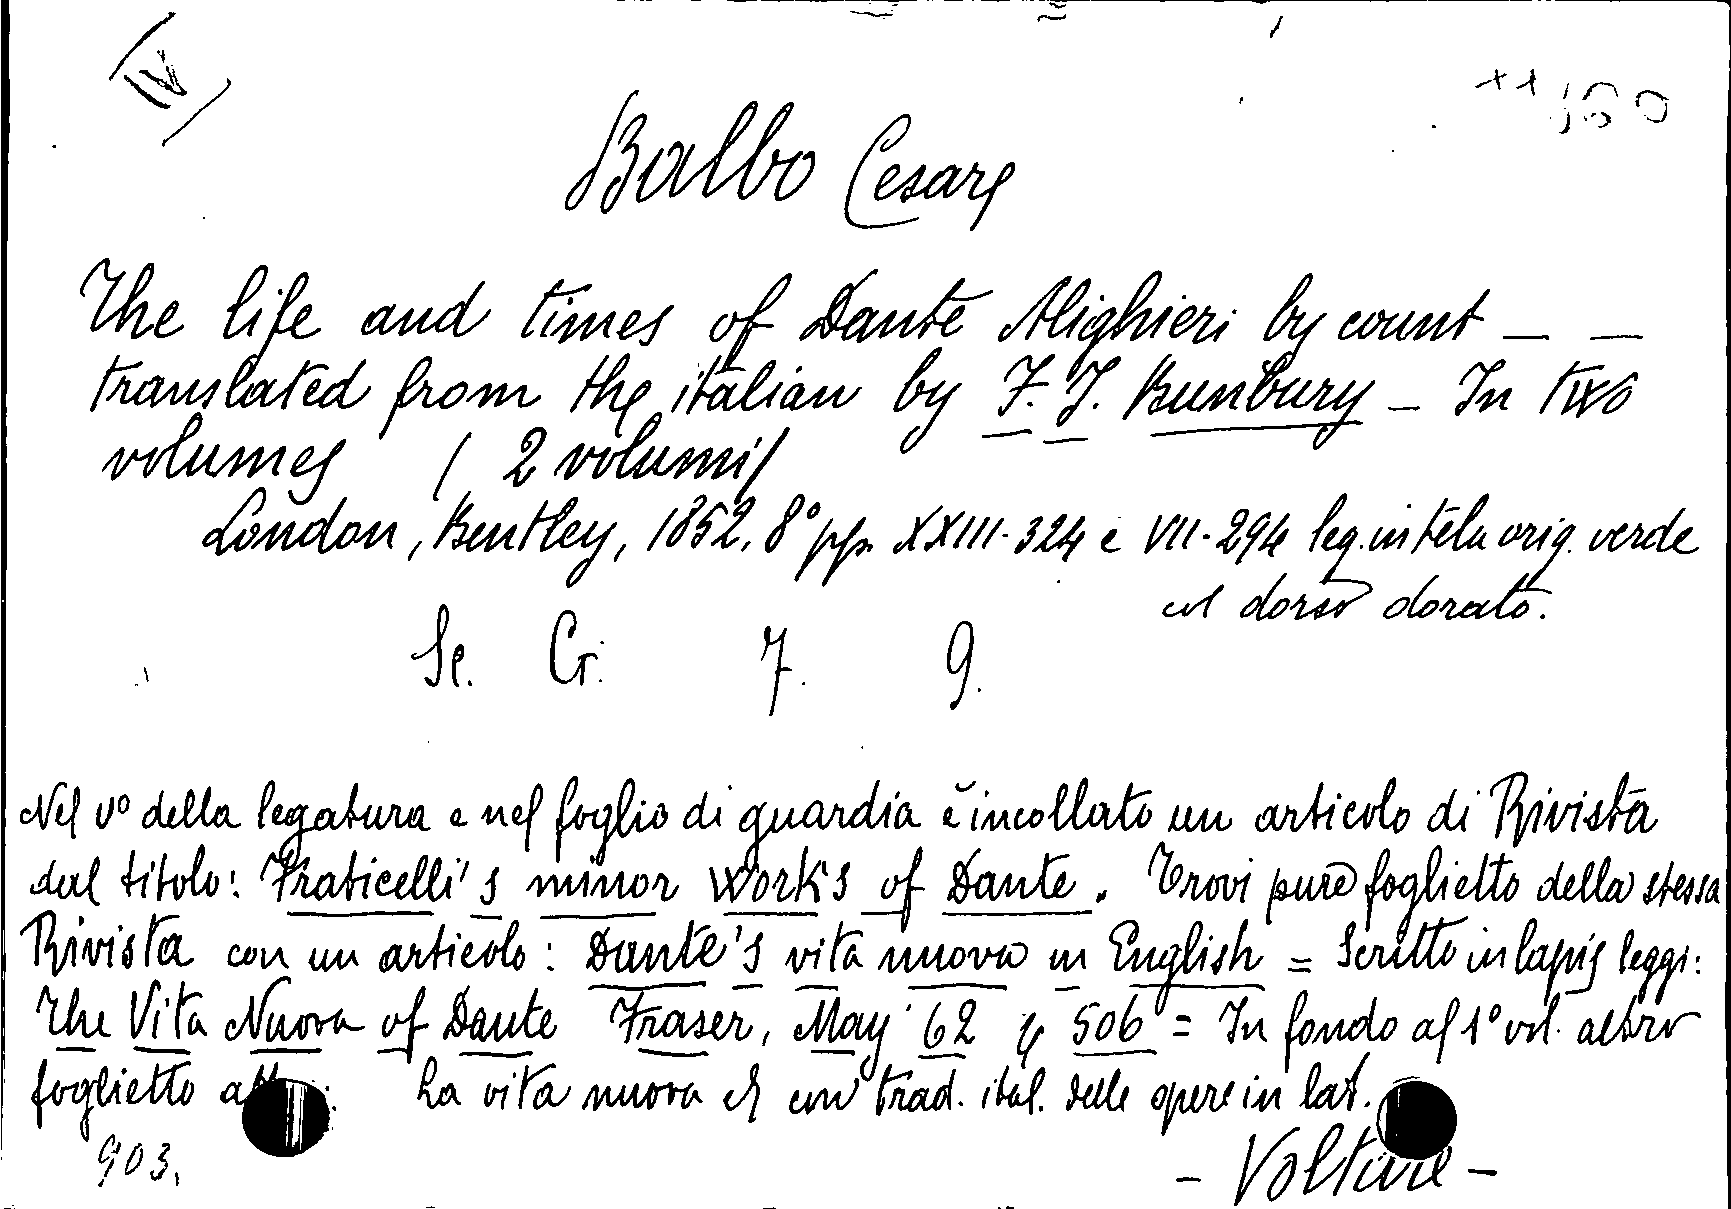 IV
160
Balbo Cesare
The life and times of Dante Alighieri by count _ _
translated from the italian by F. J. Bunbury _ In two
volumes ( 2 volumi )
London, Bentley, 1852. 8° pp. XXIII-324 e VII-294 leg. in tela orig. verde
col dorso dorato.
Se. Cr. 7. 9.
Nel v° della legatura e nel foglio di guardia è incollato un articolo di Rivista
dal titolo: Fraticelli's minor works of Dante. Trovi pure foglietto della stessa
Rivista con un articolo: Dante's vita nuova in English = Scritto in lapis leggi:
The Vita Nuova of Dante Fraser, May 62 p 506 = In fondo al 1° vol. altro
foglietto La vita nuova con trad. ital. delle opere in lat.
903.
- Voltare -